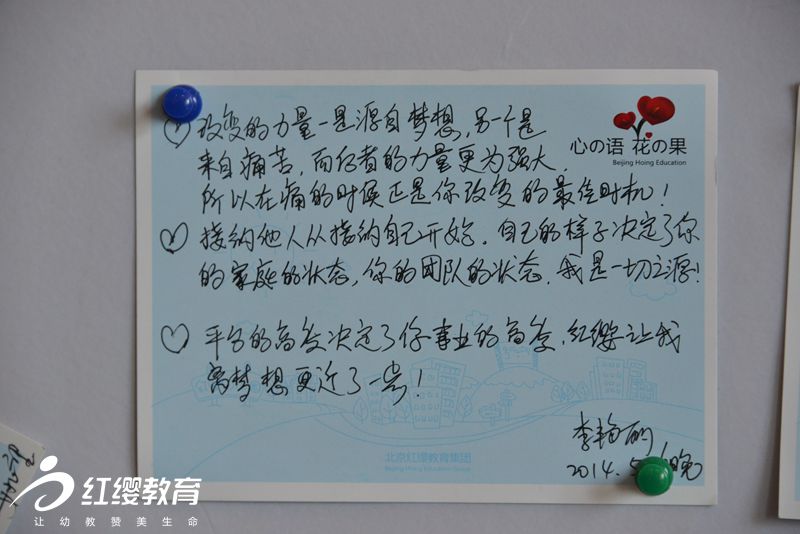 心の语 花の果
Beijing Hoing Education
♡改变的力量一是源自梦想，另一个是
来自痛苦，而后者的力量更为强大，
所以在痛的时候正是你改变的最佳时机！
♡接纳他人从接纳自己开始，自己的样子决定了你
的家庭的状态，你的团队的状态，我是一切之源！
♡平台的高度决定了你事业的高度，红缨让我
离梦想更近了一步！
李艳丽
2014.5 晚
北京红缨教育集团
Beijing Hoing Education Group
红缨教育
让幼教赞美生命